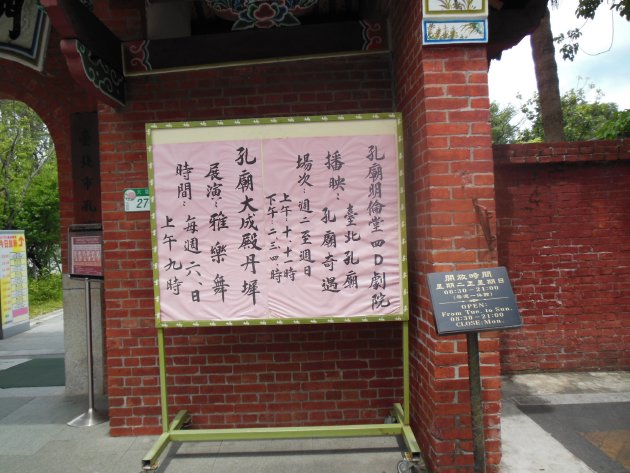 孔廟明倫堂四D劇院
播映：臺北孔廟
孔廟奇遇
場次：週二至週日
上午十、十一時
下午二三四時
孔廟大成殿丹墀
展演：雅樂舞
時間：每週六、日
上午九時
開放時間
星期二至星期日
08:30~21:00
(每週一休館)
OPEN:
From Tue. to Sun.
08:30~21:00
CLOSE:Mon.
27